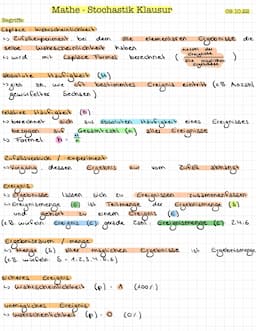 Mathe - Stochastik Klausur 09.10.22
Begriffe
Laplace Wahrscheinlichkeit
↳ Zufallsexperiment bei dem alle elementaren Ergebnisse die
selbe Wahrscheinlichkeit haben
↳ wird mit Laplace Formel berechnet
absolute Häufigkeit (H)
↳ gibt an, wie oft bestimmtes Ereignis eintritt (z.B. Anzahl
gewürfelter Sechsen)
relative Häufigkeit (h)
↳ berechnet sich aus absolute Häufigkeit eines Ereignisses
bezogen auf Gesamtzahl (n) aller Ereignisse
↳ Formel
Zufallsversuch / experiment
↳ Ausgang dieses Ergebnis nur vom Zufall abhängt
Ereignis
↳ Ergebnisse lassen sich zu Ereignissen zusammenfassen
↳ Ereignismenge ist Teilmenge der Ergebnismenge
und gehört zu einem Ereignis (E)
(z.B. würfeln Ereignis (E) gerade Zahl, Ereignismenge (E) 2,4,6
Ergebnisraum / menge
↳ Menge aller möglichen Ereignisse ist Ergebnismenge
(z.B. würfeln S = 1,2,3,4,5,6)
sicheres Ereignis
↳ Wahrscheinlichkeit (p) = 1 (100%)
unmögliches Ereignis
↳ Wahrscheinlichkeit (p) = 0 (0%)